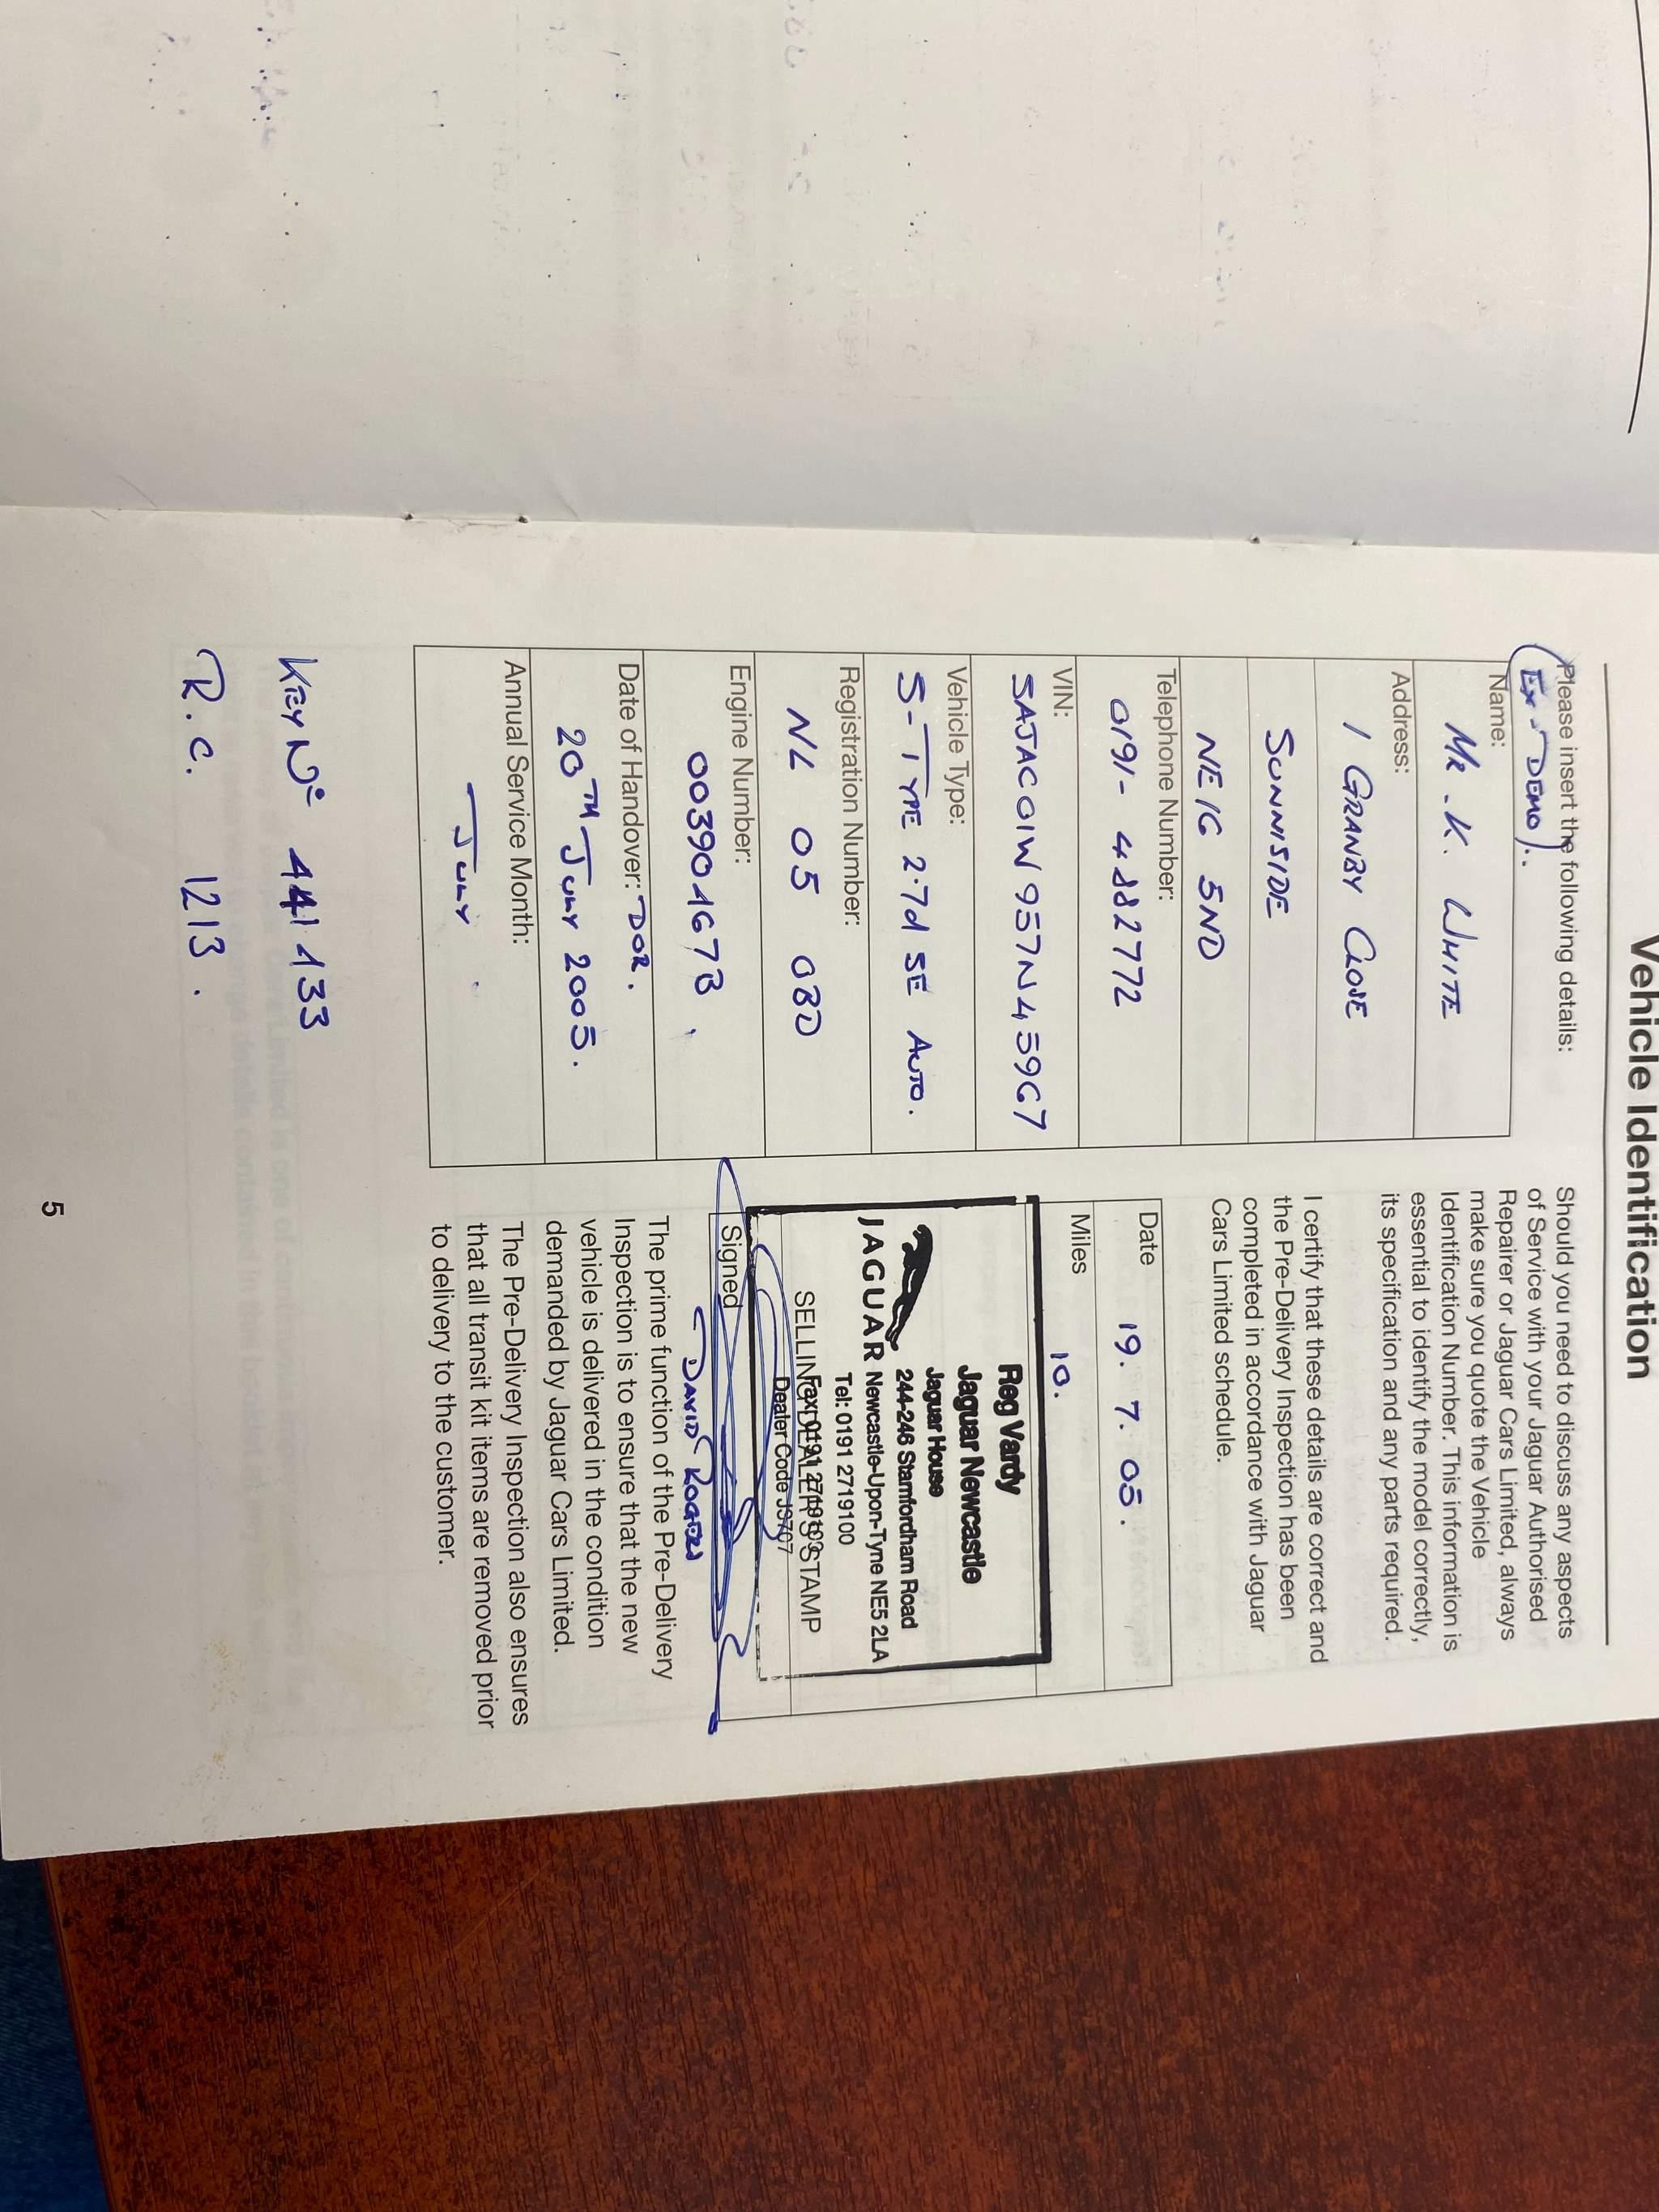 Vehicle Identification
Please insert the following details:
(Ex-DEMO)..
Name:
MR. K. WHITE
Address:
1 GRANBY CLOSE
SUNNISIDE
NE16 5ND
Telephone Number:
0191- 4882772
VIN:
SAJAC01W957N45967
Vehicle Type:
S-TYPE 2.7d SE AUTO.
Registration Number:
NL 05 OBD
Engine Number:
00390467B
Date of Handover: DOR.
20TH JULY 2005.
Annual Service Month:
JULY
KEY No 441433
R.C. 1213.
Should you need to discuss any aspects
of Service with your Jaguar Authorised
Repairer or Jaguar Cars Limited, always
make sure you quote the Vehicle
Identification Number. This information is
essential to identify the model correctly,
its specification and any parts required.
I certify that these details are correct and
the Pre-Delivery Inspection has been
completed in accordance with Jaguar
Cars Limited schedule.
Date 19. 7. 05.
Miles 10.
Reg Vardy
Jaguar Newcastle
Jaguar House
244-246 Stamfordham Road
JAGUAR Newcastle-Upon-Tyne NE5 2LA
Tel: 0191 2719100
Fax: 0191 2719103
SELLING DEALER'S STAMP
Dealer Code J9707
Signed
DAVID ROGERS
The prime function of the Pre-Delivery
Inspection is to ensure that the new
vehicle is delivered in the condition
demanded by Jaguar Cars Limited.
The Pre-Delivery Inspection also ensures
that all transit kit items are removed prior
to delivery to the customer.
5